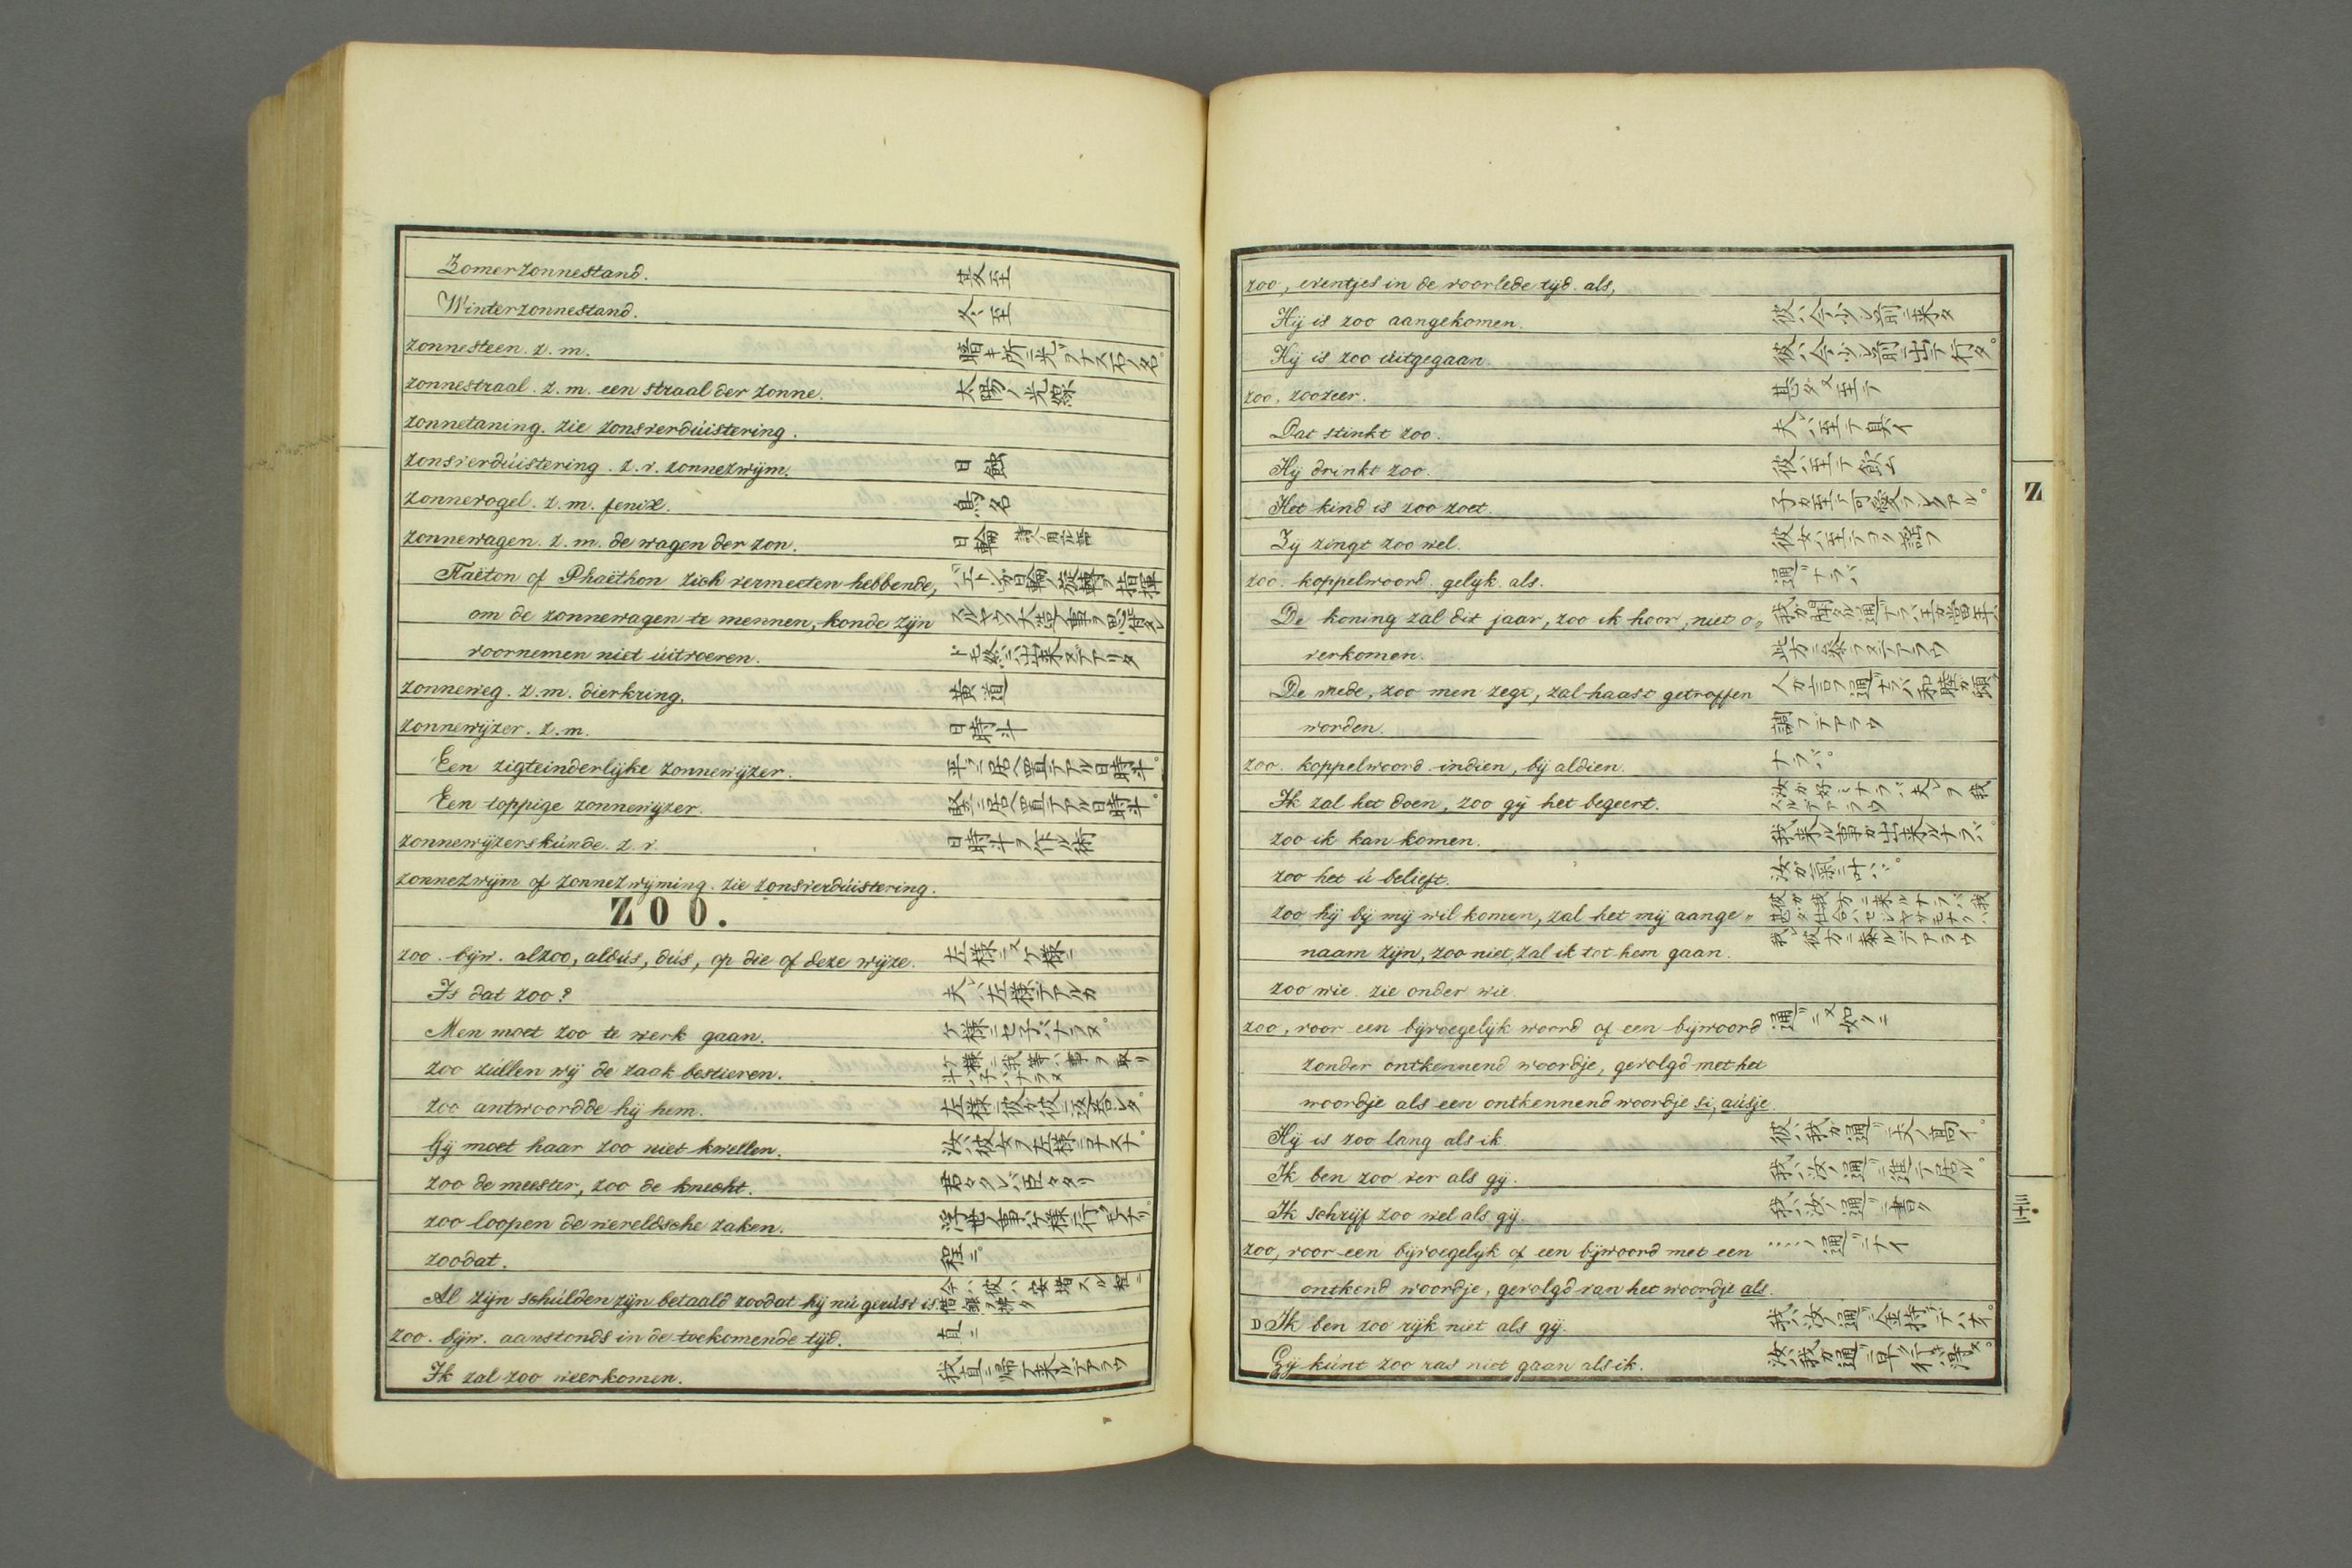 Zomerzonnestand. 夏至
Winterzonnestand. 冬至
zonnesteen. z. m. 暗キ所ニ光ヲナス石ノ名。
zonnestraal. z. m. een straal der zonne. 太陽ノ光線
zonnetaning. zie zonsverdúistering.
zonsverdúistering. z. v. zonnezwijm. 日蝕
zonnevogel. z. m. fenix. 鳥名
zonnewagen. z. m. de wagen der zon. 日輪
Faëton of Phaëthon zich vermeeten hebbende,
om de zonnewagen te mennen, konde zijn
voornemen niet úitvoeren.
zonneweg. z. m. dierkring. 黄道
zonnewijzer. z. m. 日時斗
Een zigteinderlijke zonnewijzer. 平ラニ居ヘ置テアル日時斗。
Een toppige zonnewijzer. 竪ニ居ヘ置テアル日時斗。
zonnewijzerskúnde. z. v. 日時斗ヲ作ル術
zonnezwijm of zonnezwijming. zie zonsverdúistering.
ZOO.
zoo. bijw. alzoo, aldús, dús, op die of deze wijze. 左様ニ又ケ様ニ
Is dat zoo? 夫レハ左様デアルカ
Men moet zoo te werk gaan. ケ様ニセ子バナラヌ。
zoo zúllen wij de zaak bestieren. ケ様ニ我等ハ事ヲ取リ斗ハ子バナラヌ
zoo antwoordde hij hem. 左様ニ彼ガ彼ニ返答シタ。
Gij moet haar zoo niet kwellen. 汝ハ彼女ヲ左様ニ
zoo de meester, zoo de knecht. 君々タレバ臣々タリ
zoo loopen de wereldsche zaken. 浮世ノ事ハケ様ニ行クモノナリ
zoodat. 程ニ。
Al zijn schúlden zijn betaald zoodat hij nú gerúst is. 今ハ彼ハ安堵スル程ニ借銀ヲ拂タ
zoo. bijw. aanstonds in de toekomende tijd. 直ニ
Ik zal zoo weerkomen. 我直ニ帰テ来ルデアラウ
zoo, eventjes in de voorlede tijd. als,
Hij is zoo aangekomen. 彼ハ今少シ前ニ来タ
Hij is zoo úitgegaan. 彼ハ今少シ前ニ出テ行タ。
zoo, zoozeer. 甚タ又至テ
Dat stinkt zoo. 夫レハ至テ臭イ
Hij drinkt zoo. 彼ハ至テ飲ム
Het kind is zoo zoet. 子ガ至テ可愛ラシクアル。
Zij zingt zoo wel. 彼女ハ至テヨク謡フ
zoo. koppelwoord. gelijk. als. 通リナラバ
De koning zal dit jaar, zoo ik hoor, niet o〃 我ガ聞タル通リデハ王ガ當年ハ
verkomen. 此方ニ参ラヌデアラウ
De vrede, zoo men zegt, zal haast getroffen 人ガ言フ通リナラバ和睦ガ頓テ
worden. 調フデアラウ
zoo. koppelwoord. indien, bij aldien. ナラバ。
Ik zal het doen, zoo gij het begeert. 汝ガ好ミナラバ夫レヲ我スルデアラウ
zoo ik kan komen. 我来ル事ガ出来ルナラバ。
zoo het ú belieft. 汝ガ氣ニ叶ハバ。
zoo hij bij mij wil komen, zal het mij aange〃
naam zijn, zoo niet, zal ik tot hem gaan. 我レ彼方ニ参ルデアラウ
zoo wie. zie onder wie.
zoo, voor een bijvoegelijk woord of een bijwoord 通リニ又如クニ
zonder ontkennend woordje, gevolgd met het
woordje als een ontkennend woordje si, aúsje.
Hij is zoo lang als ik. 彼ハ我ガ通リニ丈ノ高イ。
Ik ben zoo ver als gij. 我ハ汝ノ通リニ進テ居ル。
Ik schrijf zoo wel als gij. 我ハ汝ノ通リニ書ク
zoo, voor een bijvoegelijk of een bijwoord met een ....ノ通リニナイ
ontkend woordje, gevolgd van het woordje als.
D Ik ben zoo rijk niet als gij. 我ハ汝ノ通リニ金持デハナイ。
Gij kúnt zoo ras niet gaan als ik. 汝ハ我ガ通リニ早ク行キ得ヌ。
Z